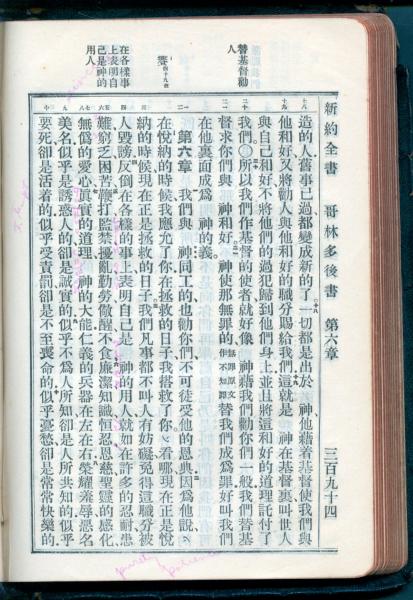 新約全書 哥林多後書 第六章 三百九十四
替基督勸人
賽四十九章
在各樣事上表明自己是神的用人
造的人、舊事已過都變成新的了、一切都是出於 神、他藉着基督使我們與
他和好、又將勸人與他和好的職分賜給我們、這就是 神在基督裏叫世人
與自己和好、不將他們的過犯歸到他們身上、並且將這和好的道理託付了
我們、○所以我們作基督的使者、就好像 神藉我們勸你們一般、我們替基
督求你們與 神和好、神使那無罪的、無罪原文作不知罪替我們成爲罪、好叫我們
在他裏面成爲 神的義。
第六章 我們與 神同工的、也勸你們、不可徒受他的恩典、因爲他說、
在悅納的時候我應允了你、在拯救的日子我搭救了你、看哪、現在正是悅
納的時候、現在正是拯救的日子、我們凡事都不叫人有妨礙、免得這職分被
人毀謗、反倒在各樣的事上表明自己是 神的用人、就如在許多的忍耐、患
難、窮乏、困苦、鞭打、監禁、擾亂、勤勞、儆醒、不食、廉潔、知識、恒忍、恩慈、聖靈的感化、
無僞的愛心、眞實的道理、 神的大能、仁義的兵器在左在右、榮耀羞辱、惡名
美名、似乎是誘惑人的、卻是誠實的、似乎不爲人所知、卻是人所共知的、似乎
要死、卻是活着的、似乎受責罰、卻是不至喪命的、似乎憂愁、卻是常常快樂的、
purely
patience